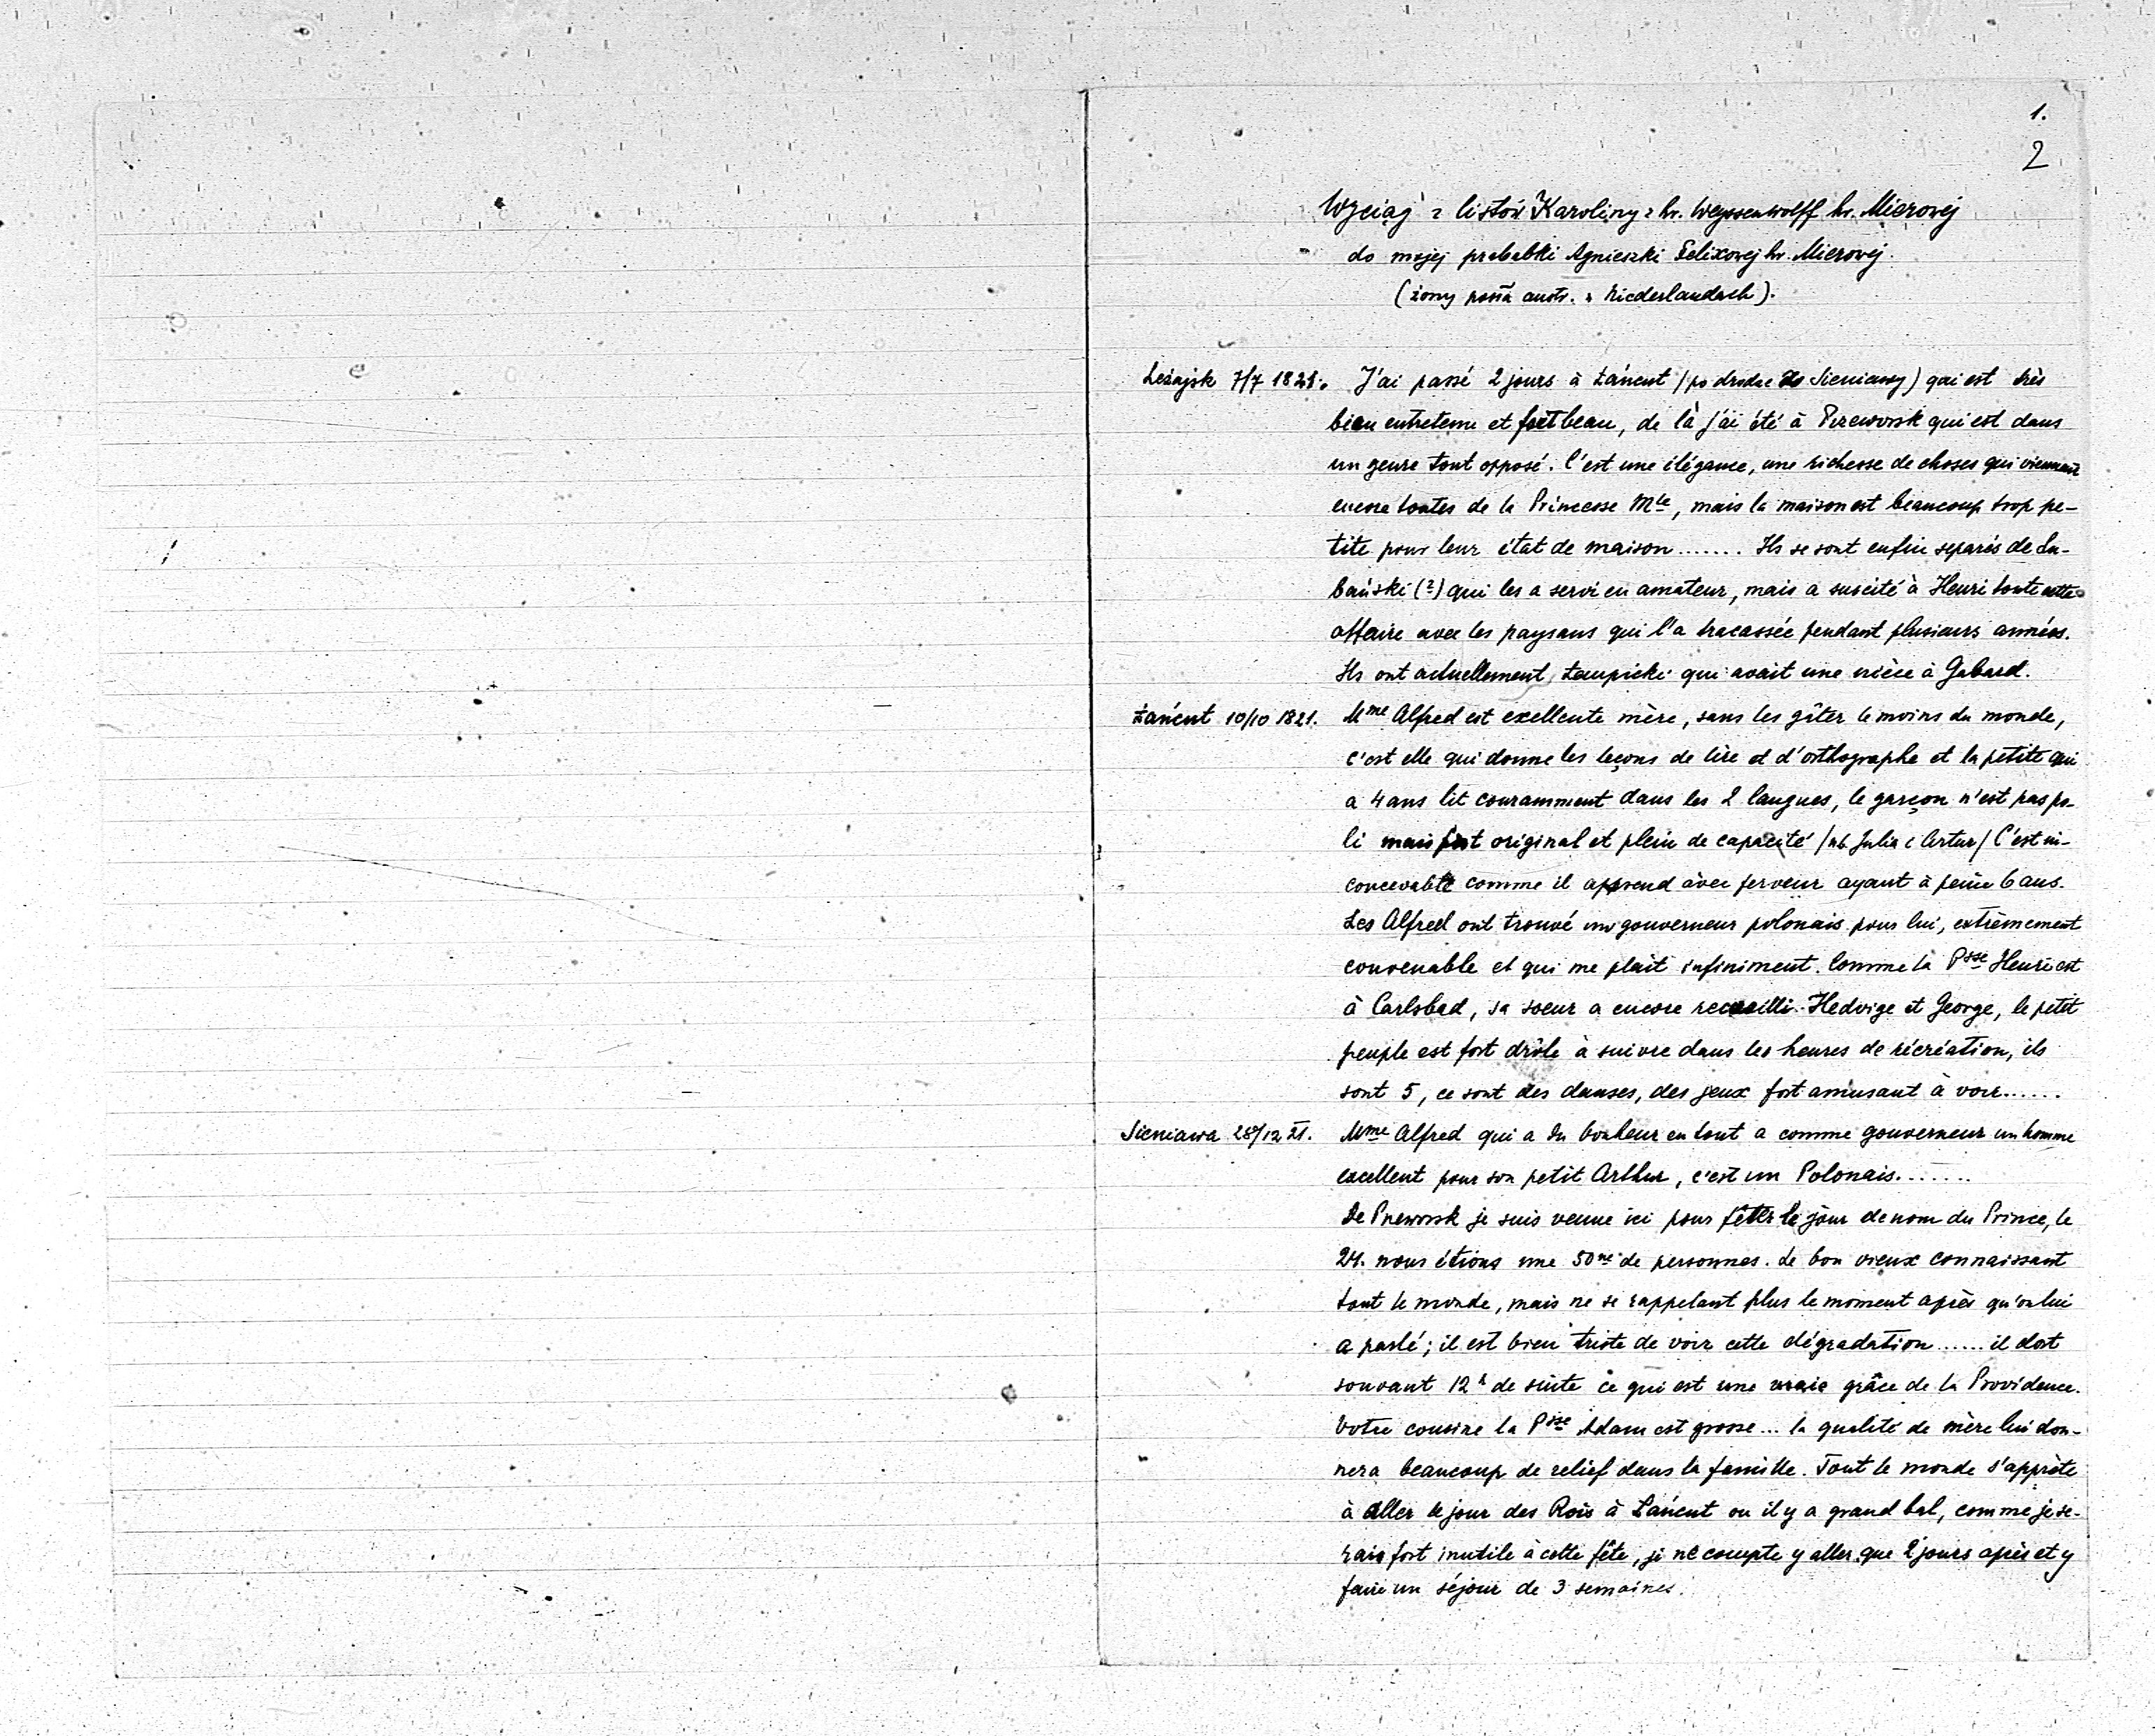 1.
2
Wyciąg z listów Karoliny z hr. Weyssenwolff hr. Mierowej
do mojej prababki Agnieszki Felixowej hr. Mierowej.
(żony posła austr. w Niederlandach).
Leżajsk 7/7 1821. J'ai passé 2 jours à Łańcut /po drodze do Sieniawy) qui est très
bien entretenu et fort beau, de là j'ai été à Przeworsk qui est dans
un genre tout opposé. C'est une élégance, une richesse de choses qui viennent
encore toutes de la Princesse Mle, mais la maison est beaucoup trop pe-
tite pour leur état de maison ....... Ils se sont enfin separés de Lu-
bański (?) qui les a servi en amateur, mais a suscité à Henri toute cette
affaire avec les paysans qui l'a tracassée pendant plusieurs années.
Ils ont actuellement Łempicki qui avait une nièce à Gabard.
Łańcut 10/10 1821. Mme Alfred est excellente mère, sans les gâter le moins du monde,
c'est elle qui donne les leçons de lire et d'orthographe et la petite qui
a 4 ans lit couramment dans les 2 langues, le garçon n'est pas po-
li mais fort original et plein de capacité /nb. Julia i Artur/ C'est in-
concevable comme il apprend avec ferveur ayant à peine 6 ans.
Les Alfred ont trouvé un gouverneur polonais pour lui, extrêmement
convenable et qui me plaît infiniment. Comme la Psse Henri est
à Carlsbad, sa soeur a encore recueilli Hedvige et George, le petit
peuple est fort drôle à suivre dans les heures de récréation, ils
sont 5, ce sont des danses, des jeux fort amusant à voir......
Sieniawa 28/12 21. Mme Alfred qui a du bonheur en tout a comme gouverneur un homme
excellent pour son petit Arthur, c'est un Polonais.......
De Przeworsk je suis venue ici pour fêter le jour de nom du Prince, le
24. nous étions une 50ne de personnes. Le bon vieux connaissant
tout le monde, mais ne se rappelant plus le moment après qu'on lui
a parlé; il est bien triste de voir cette dégradation ...... il dort
souvant 12h de suite ce qui est une vraie grâce de la Providence.
Votre cousine la Psse Adam est grosse... la qualité de mère lui don-
nera beaucoup de relief dans la famille. Tout le monde s'apprête
à aller le jour des Rois à Łańcut ou il y a grand bal, comme je se-
rais fort inutile à cette fête, je ne compte y aller que 2 jours après et y
faire un séjour de 3 semaines.